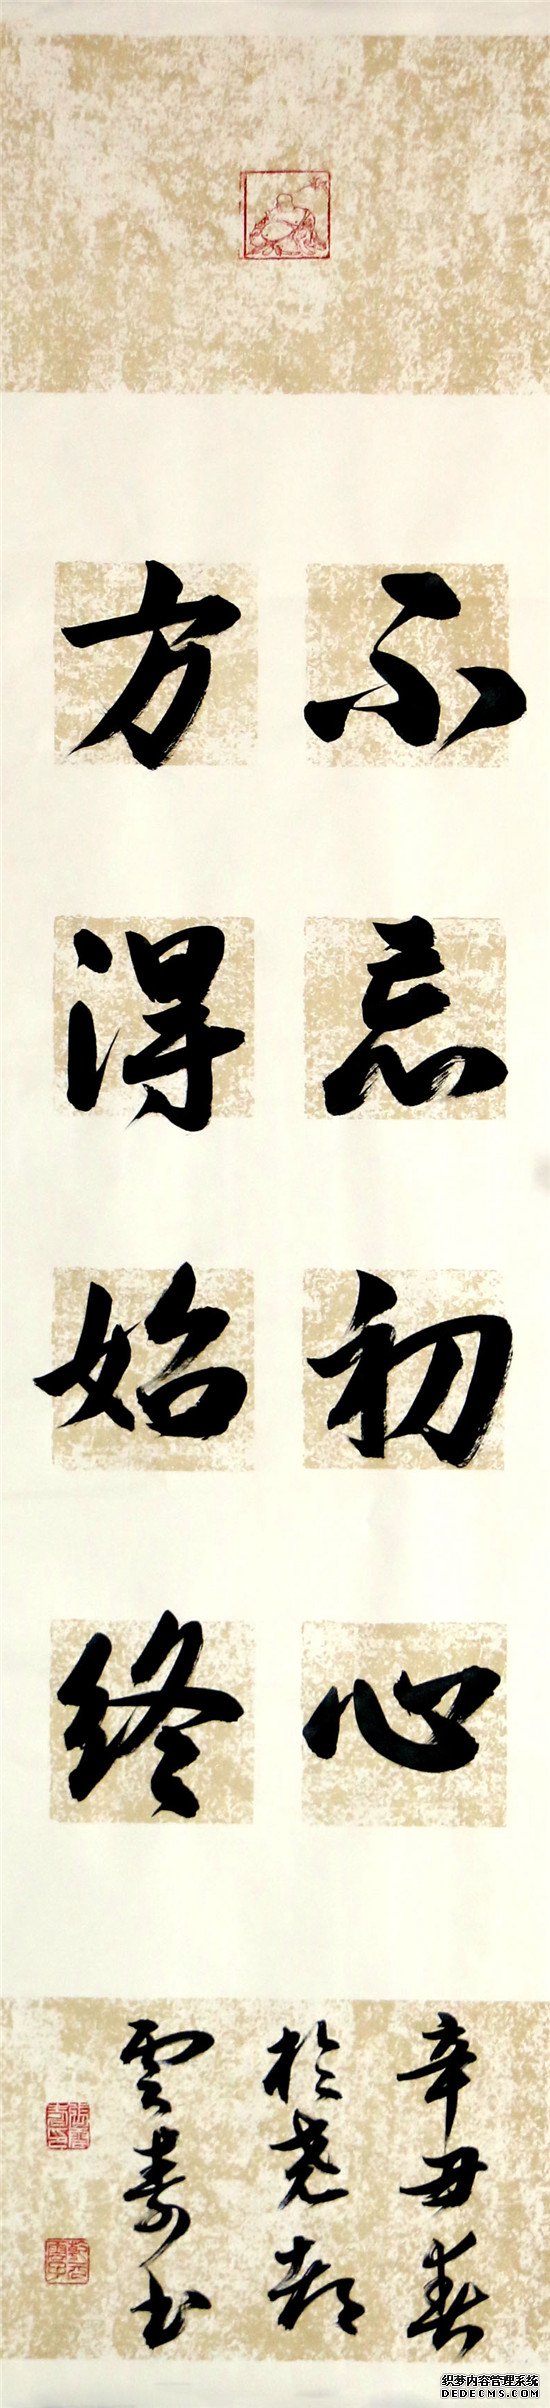 不忘初心
方得始终
辛丑春
於尧都
云寿书
织梦内容管理系统
DEDECMS.COM